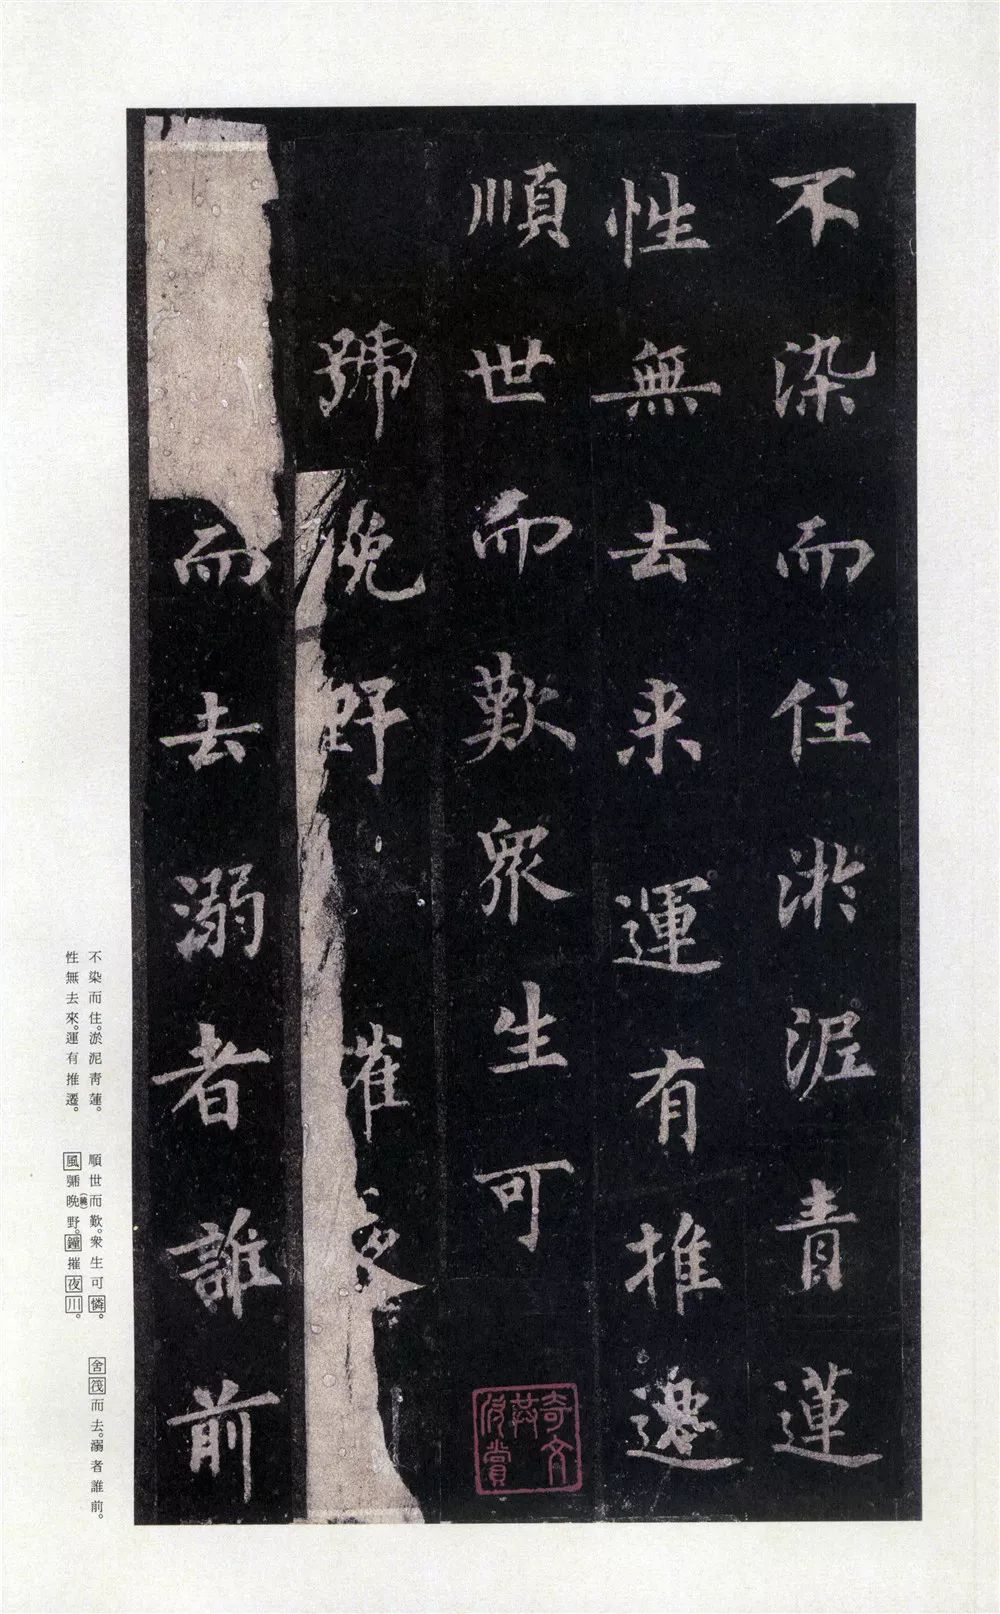 不染而住淤泥青蓮
性無去来運有推遷
順世而歎衆生可
號晚野摧夜
而去溺者誰前
奇文共欣賞
不染而住。淤泥靑蓮。
性無去來。運有推遷。
順世而歎。衆生可憐。
風號晚野。鐘摧夜川。
舍筏而去。溺者誰前。